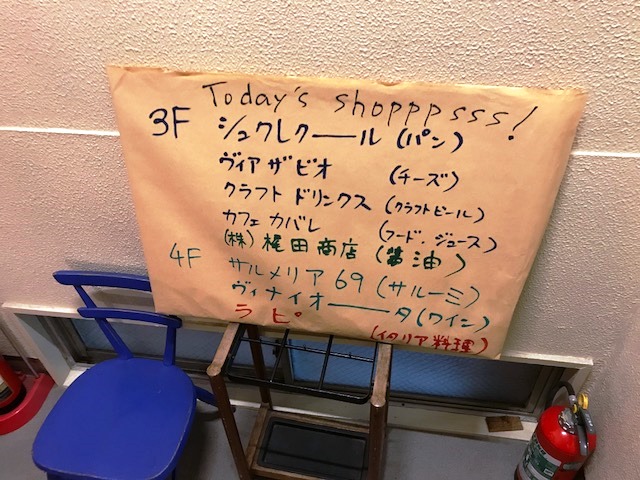 Today's shopppsss!
3F シュクレクール (パン)
ヴィアザビオ (チーズ)
クラフトドリンクス (クラフトビール)
カフェカバレ (フード・ジュース)
(株)梶田商店 (醤油)
4F サルメリア69 (サルーミ)
ヴィナイオータ (ワイン)
ラピ (イタリア料理)